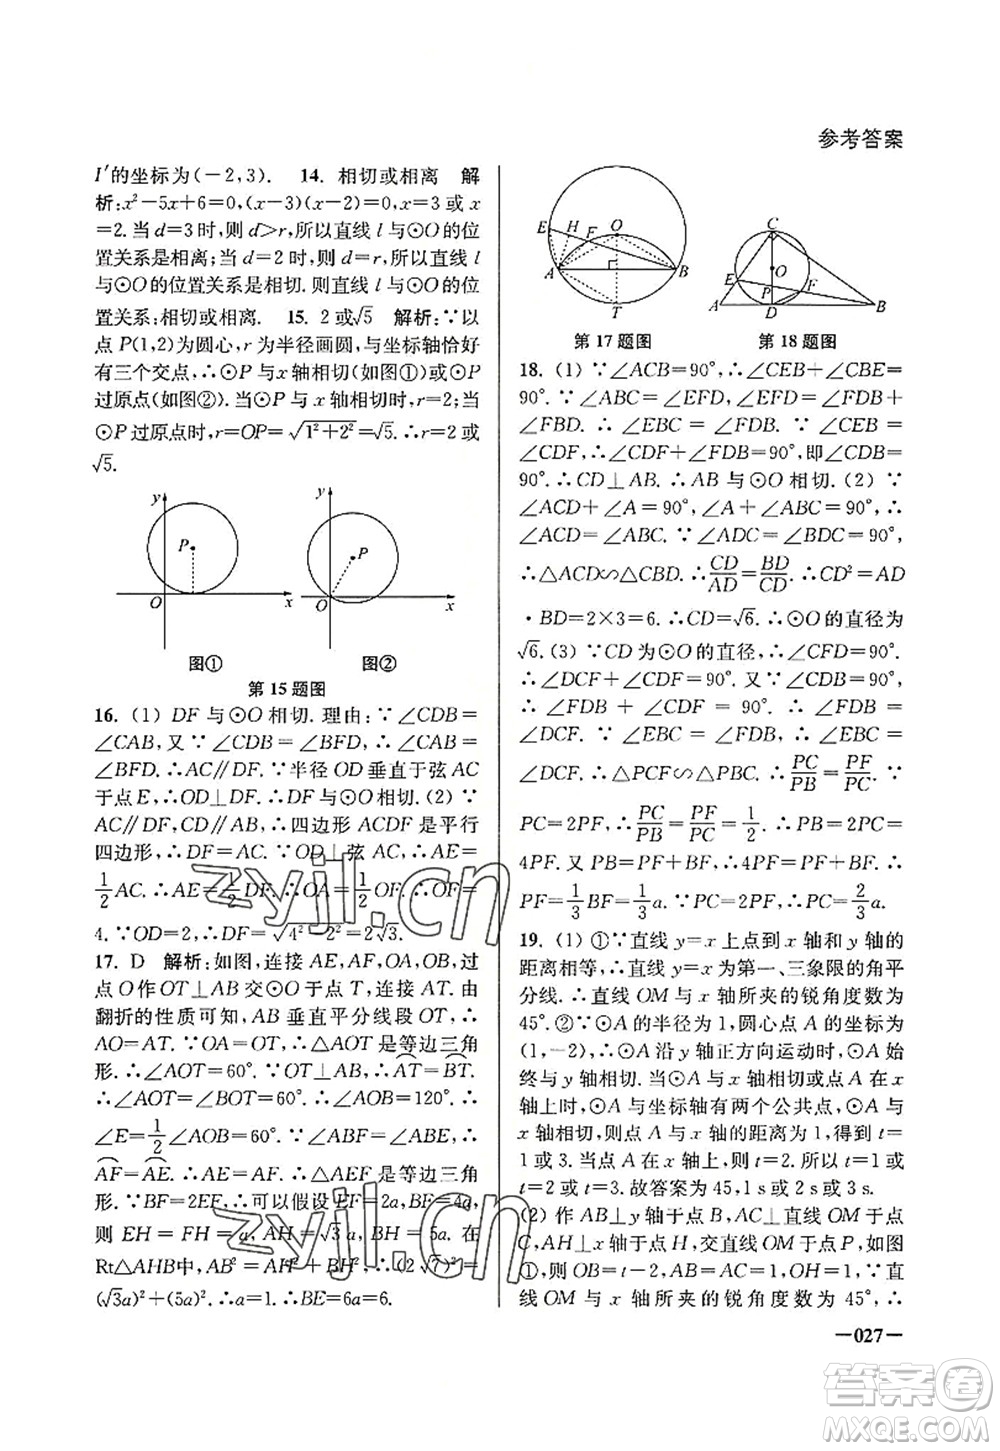 参考答案
I′的坐标为(－2,3). 14. 相切或相离 解
析:x²－5x＋6＝0,(x－3)(x－2)＝0,x＝3 或 x
＝2. 当 d＝3 时,则 d>r,所以直线 l 与⊙O 的位
置关系是相离;当 d＝2 时,则 d＝r,所以直线 l
与⊙O 的位置关系是相切. 则直线 l 与⊙O 的位
置关系:相切或相离. 15. 2 或√5 解析:∵以
点 P(1,2)为圆心,r 为半径画圆,与坐标轴恰好
有三个交点,∴⊙P 与 x 轴相切(如图①)或⊙P
过原点(如图②). 当⊙P 与 x 轴相切时,r＝2;当
⊙P 过原点时,r＝OP＝√(1²＋2²)＝√5. ∴r＝2 或
√5.
y P O x
y P O x
图① 图②
第 15 题图
16. (1) DF 与⊙O 相切. 理由:∵∠CDB＝
∠CAB,又∵∠CDB＝∠BFD,∴∠CAB＝
∠BFD. ∴AC∥DF. ∵半径 OD 垂直于弦 AC
于点 E,∴OD⊥DF. ∴DF 与⊙O 相切. (2) ∵
AC∥DF,CD∥AB,∴四边形 ACDF 是平行
四边形. ∴DF＝AC. ∵OD⊥弦 AC,∴AE＝
1/2 AC. ∴AE＝1/2 DF. ∴OA＝OF＝
4. ∵OD＝2,∴DF＝√(4²－2²)＝2√3.
17. D 解析:如图,连接 AE,AF,OA,OB,过
点 O 作 OT⊥AB 交⊙O 于点 T,连接 AT. 由
翻折的性质可知,AB 垂直平分线段 OT,∴
AO＝AT. ∵OA＝OT,∴△AOT 是等边三角
形. ∴∠AOT＝60°. ∵OT⊥AB,∴AT＝BT.
∴∠AOT＝∠BOT＝60°. ∴∠AOB＝120°. ∴
∠E＝1/2∠AOB＝60°. ∵∠ABF＝∠ABE,∴
AF＝AE. ∴AF＝AE. ∴△AEF 是等边三角
形. ∵BF＝2EF,∴可以假设 EF＝2a,BF＝4a,
则 EH＝FH＝a,AH＝√3a,BH＝5a. 在
Rt△AHB中,AB²＝AH²＋BH²,∴(2√7)²＝
(√3a)²＋(5a)². ∴a＝1. ∴BE＝6a＝6.
E H F O A B T
C E O F P A D B
第 17 题图 第 18 题图
18. (1) ∵∠ACB＝90°,∴∠CEB＋∠CBE＝
90°. ∵∠ABC＝∠EFD,∠EFD＝∠FDB＋
∠FBD. ∴∠EBC＝∠FDB. ∵∠CEB＝
∠CDF,∴∠CDF＋∠FDB＝90°,即∠CDB＝
90°. ∴CD⊥AB. ∴AB 与⊙O 相切. (2) ∵
∠ACD＋∠A＝90°,∠A＋∠ABC＝90°,∴
∠ACD＝∠ABC. ∵∠ADC＝∠BDC＝90°,
∴△ACD∽△CBD. ∴CD/AD＝BD/CD. ∴CD²＝AD
·BD＝2×3＝6. ∴CD＝√6. ∴⊙O 的直径为
√6. (3) ∵CD为⊙O 的直径,∴∠CFD＝90°.
∴∠DCF＋∠CDF＝90°. 又∵∠CDB＝90°,
∴∠FDB＋∠CDF＝90°. ∴∠FDB＝
∠DCF. ∵∠EBC＝∠FDB,∴∠EBC＝
∠DCF. ∴△PCF∽△PBC. ∴PC/PB＝PF/PC. ∵
PC＝2PF,∴PC/PB＝PF/PC＝1/2. ∴PB＝2PC＝
4PF. 又 PB＝PF＋BF,∴BF＝3PF. ∴
PF＝1/3BF＝1/3a. ∵PC＝2PF,∴PC＝2/3a.
19. (1) ①∵直线 y＝x 上点到 x 轴和 y 轴的
距离相等,∴直线 y＝x 为第一、三象限的角平
分线. ∴直线 OM 与 x 轴所夹的锐角度数为
45°. ②∵⊙A 的半径为 1,圆心点 A 的坐标为
(1,－2),∴⊙A 沿 y 轴正方向运动时,⊙A 始
终与 y 轴相切. 当⊙A 与 x 轴相切或点 A 在 x
轴上时,⊙A 与坐标轴有两个公共点,当⊙A 与
x 轴相切,则点 A 与 x 轴的距离为 1,得到 t＝
1 或 3. 当点 A 在 x 轴上,则 t＝2. 所以,t＝1 或
t＝2 或 t＝3. 故答案为 45,1 s 或 2 s 或 3 s.
(2) 作 AB⊥y 轴于点 B,AC⊥直线 OM 于点
C,AH⊥x 轴于点 H,交直线 OM 于点 P,如图
①,则 OB＝t－2,∴AH＝t－2,OH＝1. ∵直
线 OM 与 x 轴所夹的锐角度数为 45°,∴
—027—
zyjl.cn
zyjl.cn
答案圈
MXQE.COM